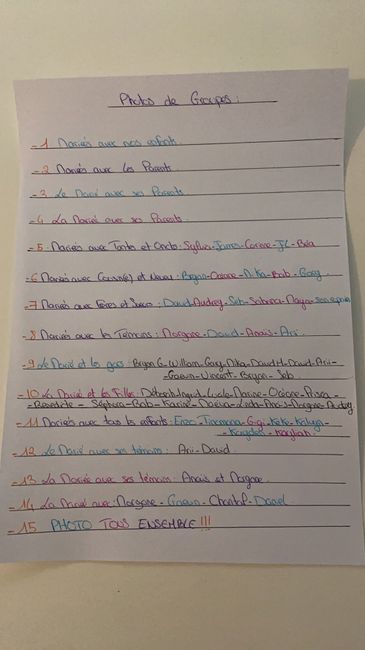 Photos de Groupes :
-1 Mariés avec nos enfants.
-2 Mariés avec les Parents
-3 Le Marié avec ses Parents
-4 La Mariée avec ses Parents.
-5. Mariés avec Tante et Oncle: Sylvia-James-Corinne-JL-Béa
-6 Mariés avec et Neveu: Bryan-Océane-Mika-Bob-Gary
-7 Mariés avec Frères et Soeurs: David-Audrey-Seb-Sabrina-Maya-
-8 Mariés avec les Témoins: Morgane-David-Anaïs-Ari.
-9 Le Marié et les gas: Bryan G-William-Gary-Mika-David H-David-Ari-
-Goeun-Vincent-Bryan-Seb
-10 La Mariée et les Filles: Déborah-Ingrid-Lucile-Marine-Océane-
-Séphora-Bob-Karine-Maeva-Linda-Anaïs-Morgane-Audrey
-11 Mariés avec tous les enfants: Enzo-Gigi-Keke-Kelya-
-Kayden-Kaylah
-12 Le Marié avec ses témoins: Ari-David
-13 La Mariée avec ses témoins: Anaïs et Morgane
-14 La Mariée avec Morgane-Goeun-Chantal-Daniel
-15 PHOTO TOUS ENSEMBLE!!!